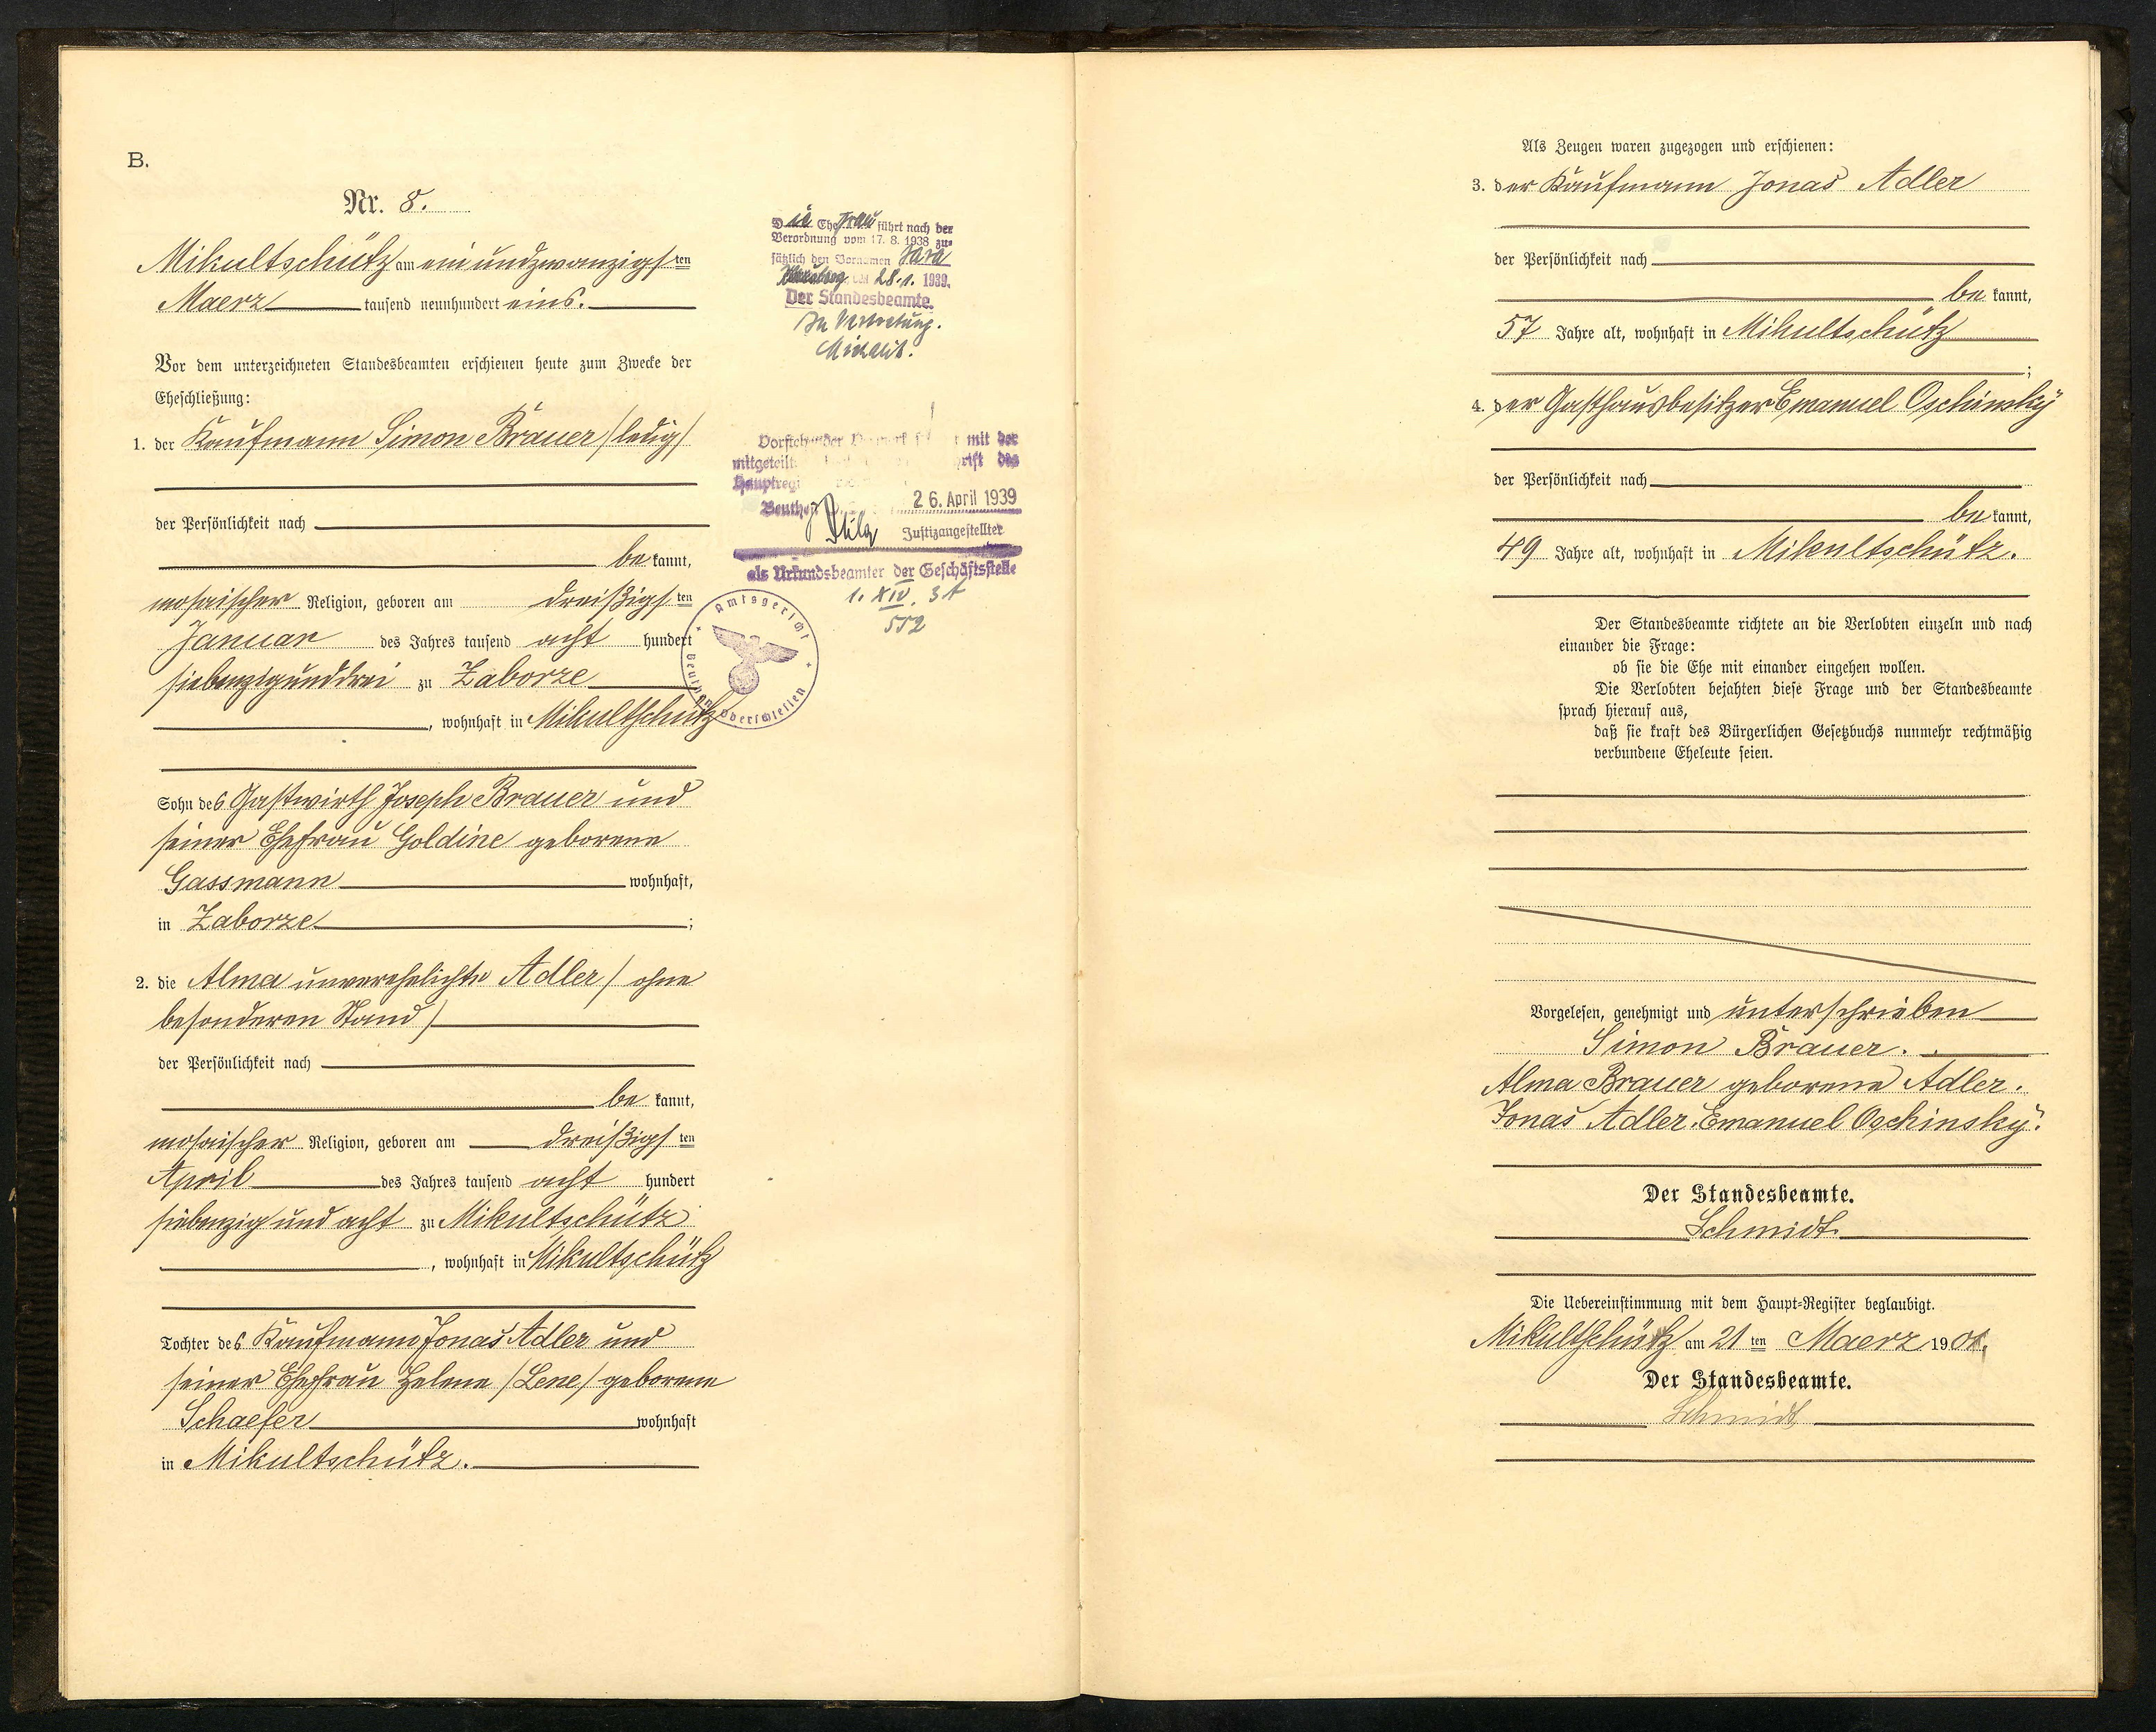 B.
Nr. 8.
Mikultschütz am einundzwanzigsten
Maerz tausend neunhundert eins.
Vor dem unterzeichneten Standesbeamten erschienen heute zum Zwecke der
Eheschließung:
1. der Kaufmann Simon Brauer /ledig/
der Persönlichkeit nach
bekannt,
mosaischer Religion, geboren am dreißigsten
Januar des Jahres tausend acht hundert
siebenzigunddrei zu Zaborze
, wohnhaft in Mikultschütz
Sohn des Gastwirth Joseph Brauer und
seiner Ehefrau Goldine geborene
Gassmann wohnhaft,
in Zaborze;
2. die Alma unverehelichte Adler / ohne
besonderen Stand /
der Persönlichkeit nach
bekannt,
mosaischer Religion, geboren am dreißigsten
April des Jahres tausend acht hundert
siebenzig und acht zu Mikultschütz
, wohnhaft in Mikultschütz
Tochter des Kaufmann Jonas Adler und
seiner Ehefrau Helene /Lene/ geborene
Schaefer wohnhaft
in Mikultschütz.
Die Ehefrau führt nach der
Verordnung vom 17. 8. 1938 zu-
sätzlich den Vornamen Sara
den 28. 1. 1939.
Der Standesbeamte.
In Vertretung.
Vorstehender mit der
mitgeteilt des
26. April 1939
Justizangestellter
als Urkundsbeamter der Geschäftsstelle
1. XIV. 31
552
Amtsgericht
Beuthen Oberschlesien
Als Zeugen waren zugezogen und erschienen:
3. der Kaufmann Jonas Adler
der Persönlichkeit nach
bekannt,
57 Jahre alt, wohnhaft in Mikultschütz
;
4. der Gasthausbesitzer Emanuel Oschinsky
der Persönlichkeit nach
bekannt,
49 Jahre alt, wohnhaft in Mikultschütz.
Der Standesbeamte richtete an die Verlobten einzeln und nach
einander die Frage:
ob sie die Ehe mit einander eingehen wollen.
Die Verlobten bejahten diese Frage und der Standesbeamte
sprach hierauf aus,
daß sie kraft des Bürgerlichen Gesetzbuchs nunmehr rechtmäßig
verbundene Eheleute seien.
Vorgelesen, genehmigt und unterschrieben
Simon Brauer.
Alma Brauer geborene Adler.
Jonas Adler. Emanuel Oschinsky.
Der Standesbeamte.
Schmidt.
Die Uebereinstimmung mit dem Haupt-Register beglaubigt.
Mikultschütz am 21ten Maerz 1901.
Der Standesbeamte.
Schmidt